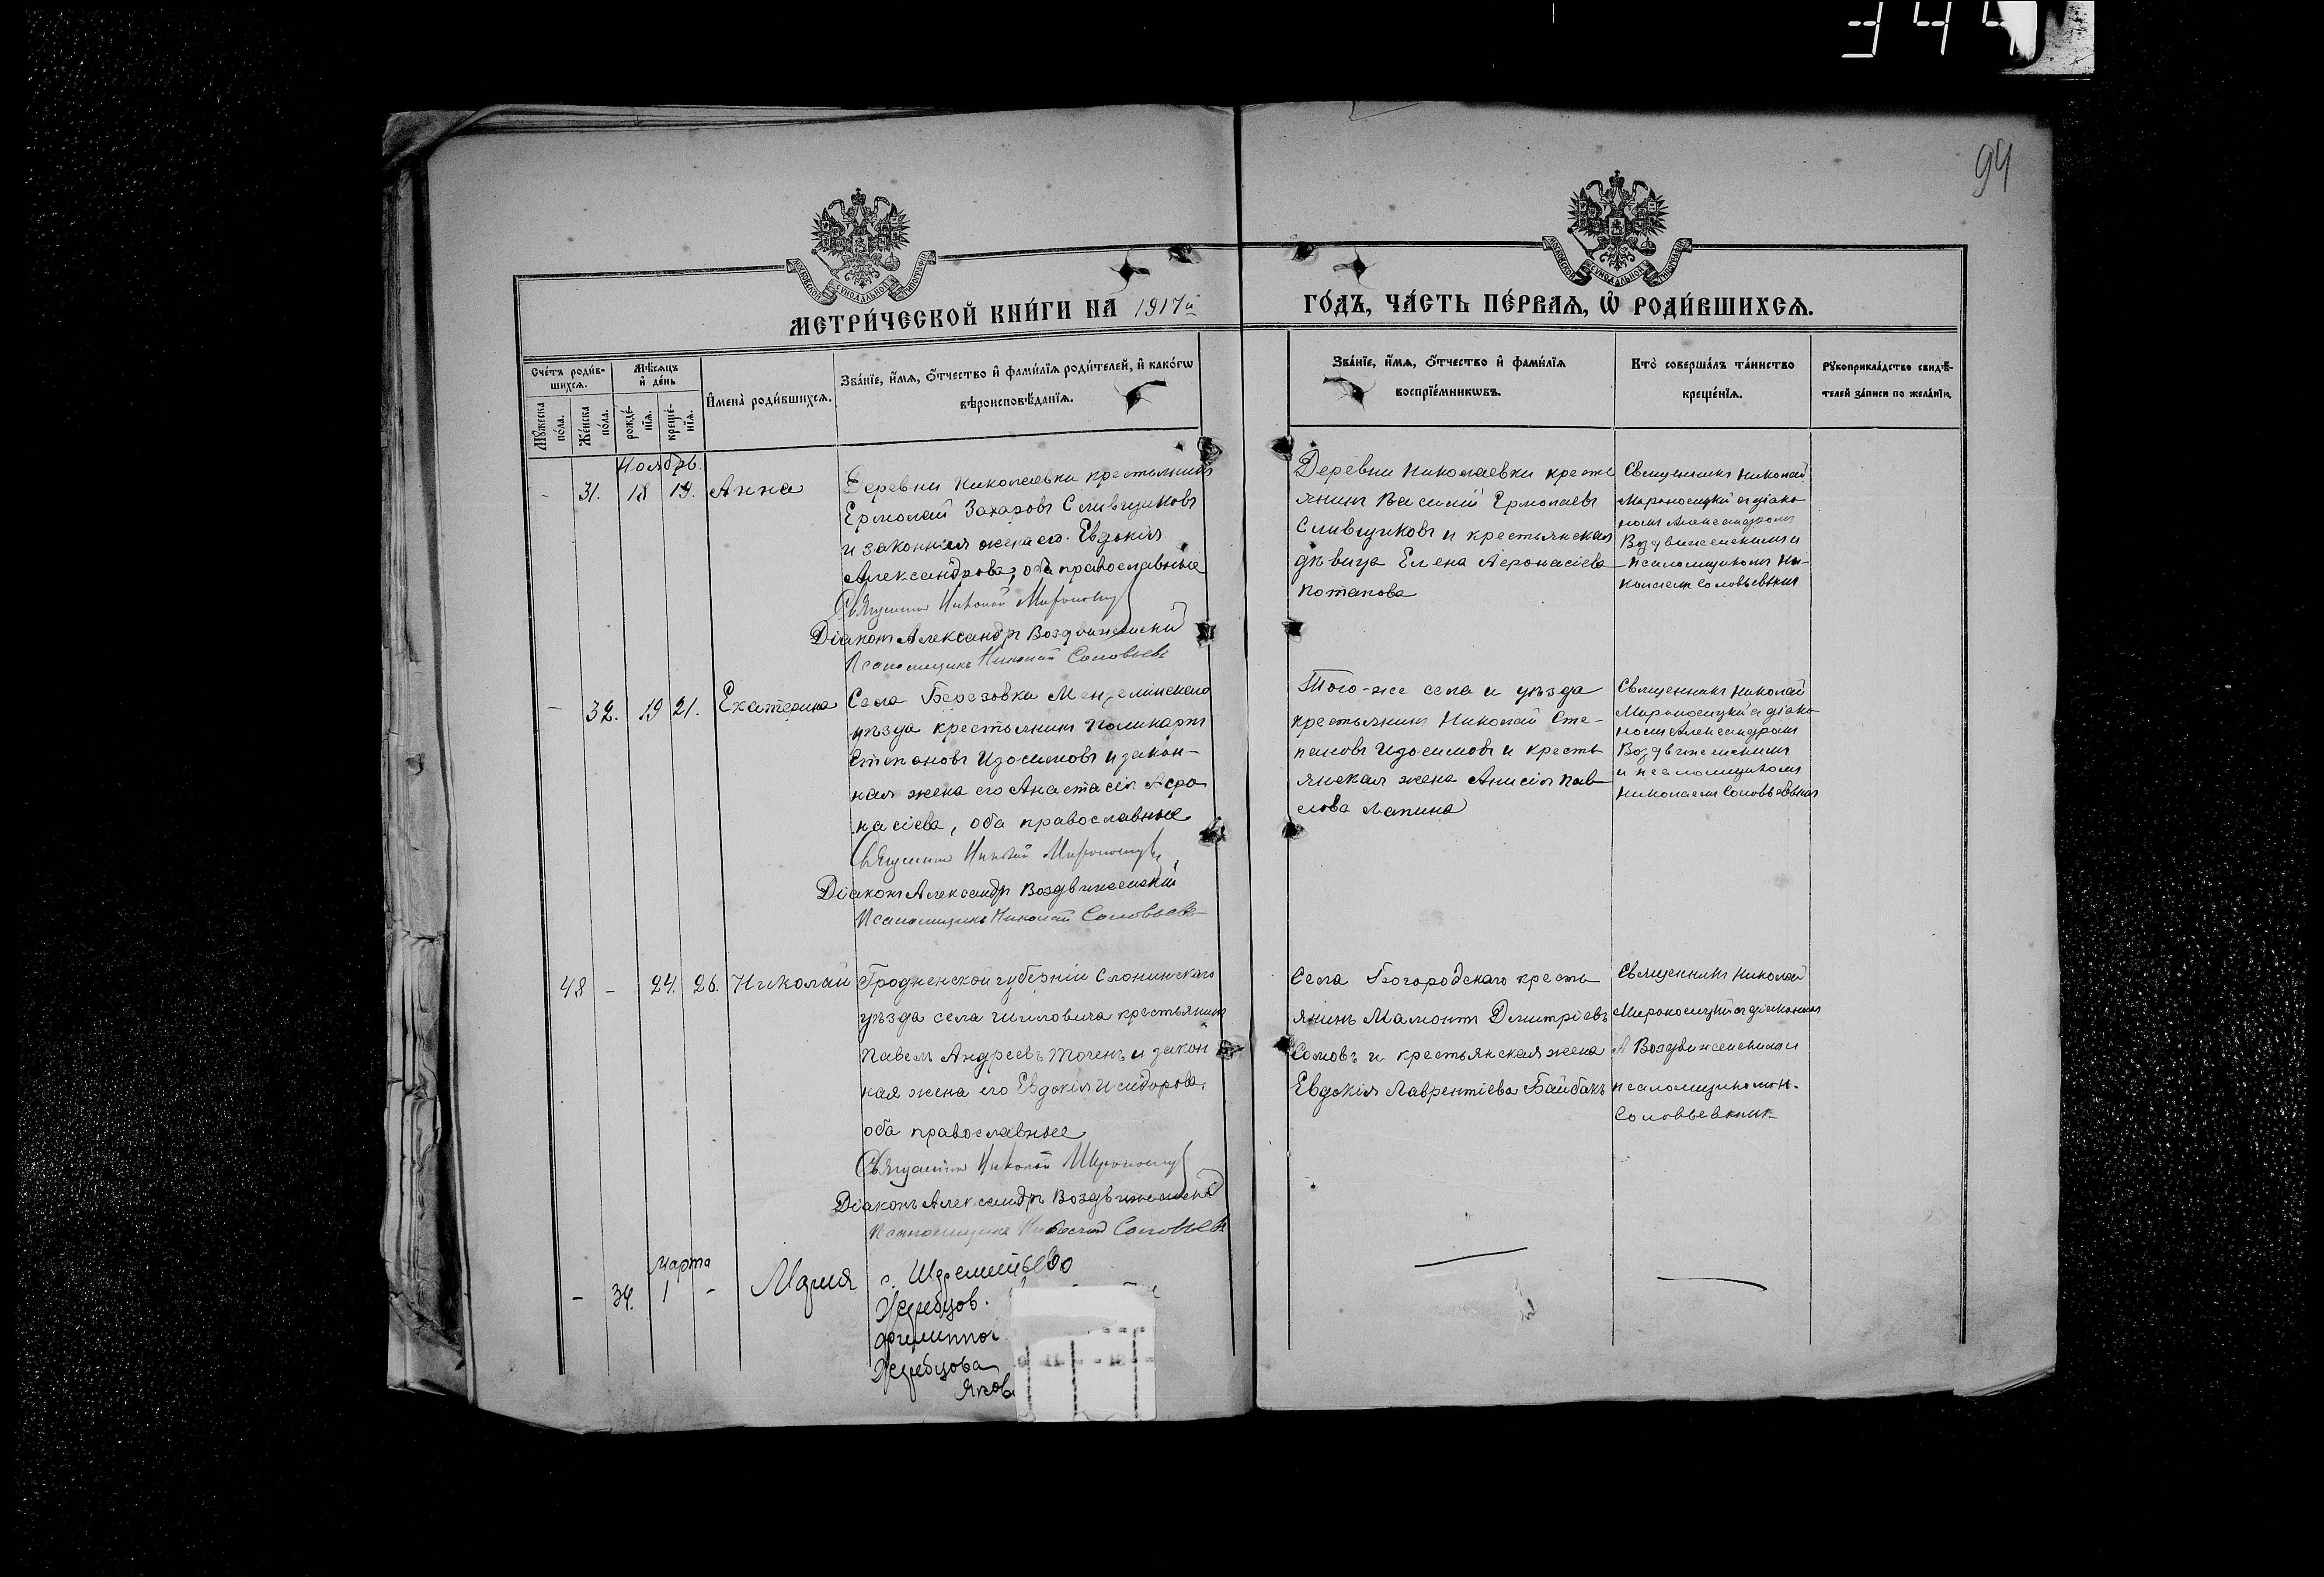 344
94
МЕТРИ́ЧЕСКОЙ КНИ́ГИ НА 1917й ГО́ДЪ, ЧА́СТЬ ПЕ́РВАѦ, Ѡ҆ РОДИ́ВШИХСѦ.
Сче́тъ роди́в-
шихсѧ.
Му́жеска
по́ла.
Же́нска
по́ла.
Мѣ́сяцъ
и҆ де́нь
рожде́-
нїѧ.
креще́-
нїѧ.
И҆мена̀ роди́вшихсѧ.
Зва́нїе, и҆́мѧ, ѻ҆́тчество и҆ фами́лїѧ роди́телей, и҆ како́гѡ
вѣроисповѣ́данїѧ.
Зва́нїе, и҆́мѧ, ѻ҆́тчество и҆ фами́лїѧ
воспрїе́мникѡвъ.
Кто̀ соверша́лъ та́инство
креще́нїѧ.
Рꙋкоприкла́дство свидѣ́-
телей за́писи по жела́нїю.
Ноябрь.
- 31. 18 19. Анна
Деревни Николаевки крестьянинъ
Ермолай Захаровъ Сливщиковъ
и законная жена его Евдокія
Александрова, оба православные
Священникъ Николай Мироносицкій
Діаконъ Александръ Воздвиженскій
Псаломщикъ Николай Соловьевъ
Деревни Николаевки кресть
янинъ Василій Ермолаевъ
Сливщиковъ и крестьянская
дѣвица Елена Аѳонасіева
Потапова
Священникъ Николай
Мироносицкій съ діако
номъ Александромъ
Воздвиженскимъ и
псаломщикомъ Ни-
колаемъ Соловьевымъ
- 32. 19 21. Екатерина
Села Березовки Мензелинскаго
уѣзда крестьянинъ Поликарпъ
Степановъ Изосимовъ и закон-
ная жена его Анастасія Аѳо
насіева, оба православные
Священникъ Николай Мироносицкій
Діаконъ Александръ Воздвиженскій
Псаломщикъ Николай Соловьевъ
Того-же села и уѣзда
крестьянинъ Николай Сте-
пановъ Изосимовъ и кресть
янская жена Анисія Пав-
лова Лапина
Священникъ Николай
Мироносицкій съ діако
номъ Александромъ
Воздвиженскимъ
и псаломщикомъ
Николаемъ Соловьевымъ
48 - 24. 26. Николай
Гродненской губерніи Слонимскаго
уѣзда села крестьянинъ
Павелъ Андреевъ и закон
ная жена его Евдокія Исидорова,
оба православные
Священникъ Николай Мироносицкій
Діаконъ Александръ Воздвиженскій
Псаломщикъ Николай Соловьевъ
Села Богородскаго кресть
янинъ Мамонтъ Димитріевъ
Сомовъ и крестьянская жена
Евдокія Лаврентіева Байбакъ
Священникъ Николай
Мироносицкій съ діакономъ
А Воздвиженскимъ и
псаломщикомъ Н.
Соловьевымъ
Марта
- 34. 1 - Мария
с. Шереметьево
Жеребцов.
Филиппов
Жеребцова
Яков